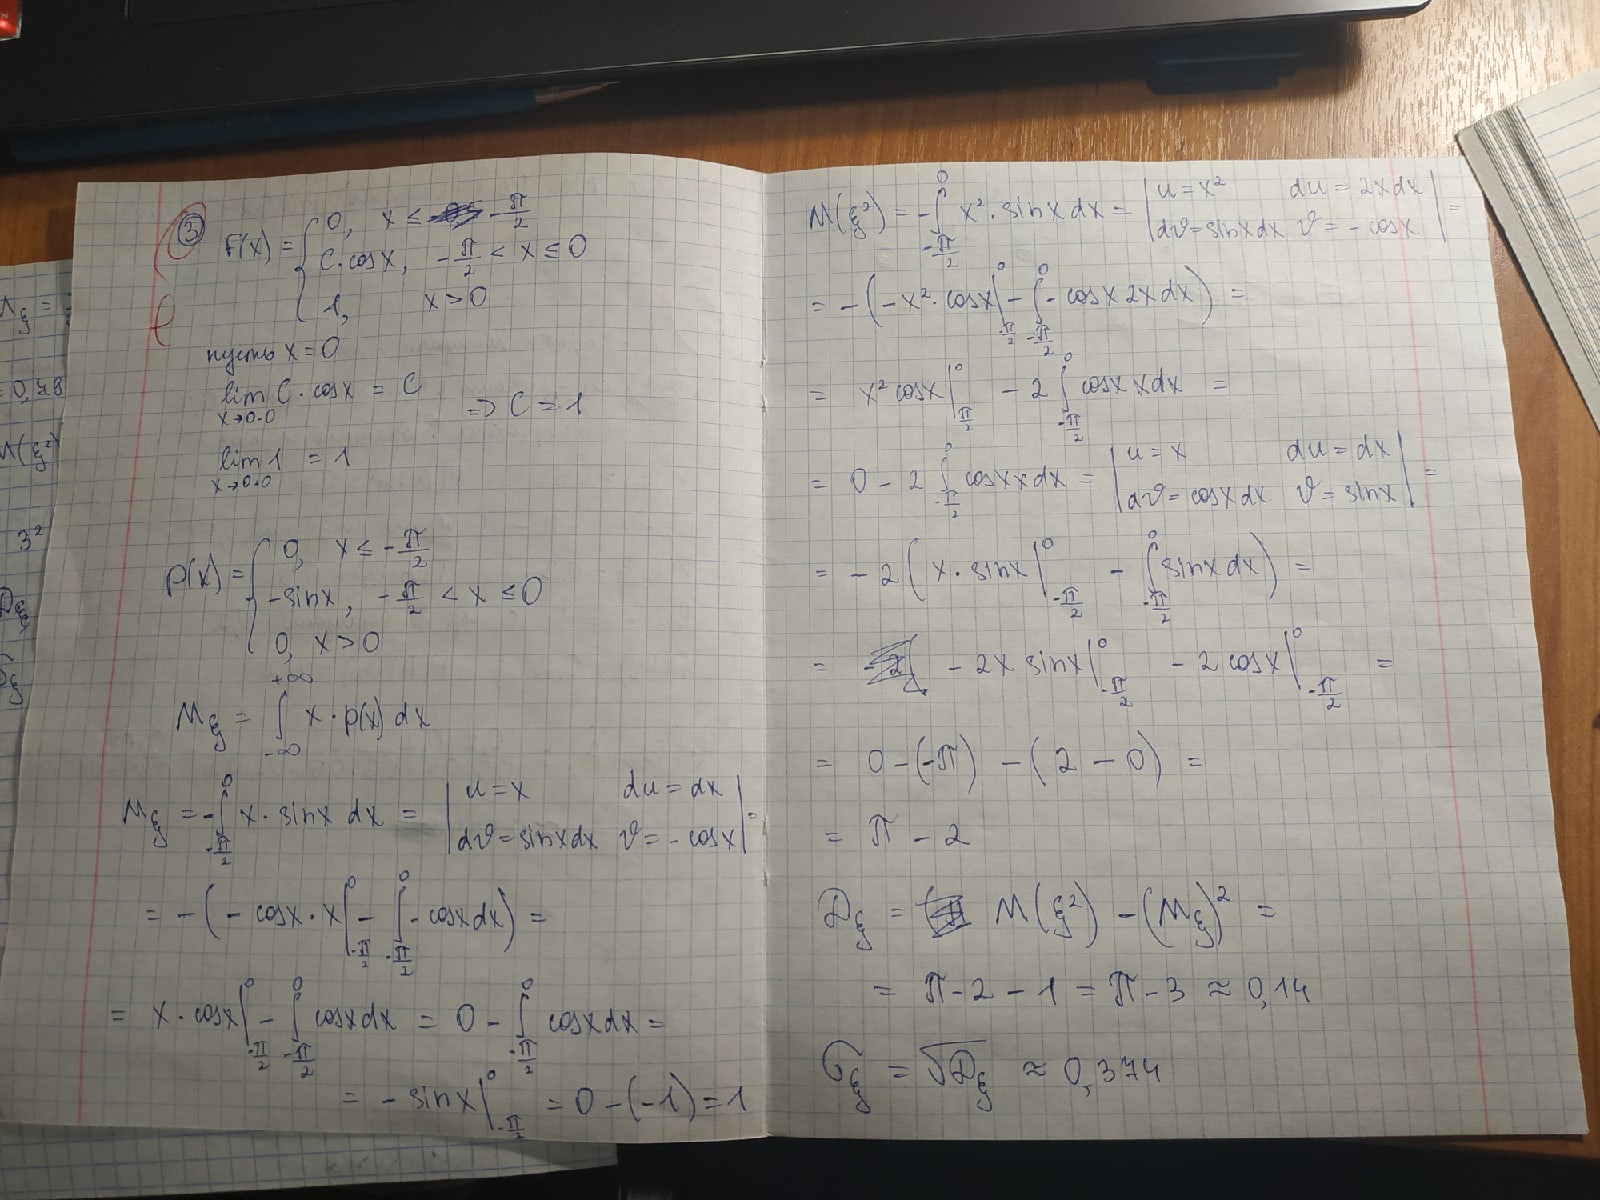 3
F(x) = { 0, x ≤ -π/2
C·cosx, -π/2 < x ≤ 0
1, x > 0
пусть x = 0
lim x→0-0 C·cosx = C
=> C = 1
lim x→0+0 1 = 1
p(x) = { 0, x ≤ -π/2
-sinx, -π/2 < x ≤ 0
0, x > 0
Mξ = ∫_{-∞}^{+∞} x·p(x) dx
Mξ = -∫_{-π/2}^{0} x·sinx dx = | u = x du = dx
dϑ = sinxdx ϑ = -cosx | =
= -(-cosx·x |_{-π/2}^{0} - ∫_{-π/2}^{0} -cosxdx) =
= x·cosx |_{-π/2}^{0} - ∫_{-π/2}^{0} cosxdx = 0 - ∫_{-π/2}^{0} cosxdx =
= -sinx |_{-π/2}^{0} = 0-(-1) = 1
M(ξ²) = -∫_{-π/2}^{0} x²·sinxdx = | u = x² du = 2xdx
dϑ = sinxdx ϑ = -cosx | =
= -(-x²·cosx |_{-π/2}^{0} - ∫_{-π/2}^{0} -cosx2xdx) =
= x²cosx |_{-π/2}^{0} - 2 ∫_{-π/2}^{0} cosx xdx =
= 0 - 2 ∫_{-π/2}^{0} cosx xdx = | u = x du = dx
dϑ = cosxdx ϑ = sinx | =
= -2(x·sinx |_{-π/2}^{0} - ∫_{-π/2}^{0} sinxdx) =
= -2x sinx |_{-π/2}^{0} - 2cosx |_{-π/2}^{0} =
= 0-(-π) -(2-0) =
= π - 2
Dξ = M(ξ²) - (Mξ)² =
= π-2-1 = π-3 ≈ 0,14
σξ = √Dξ ≈ 0,374
Mξ =
= 0,48
M(ξ²)
3²
Dξ